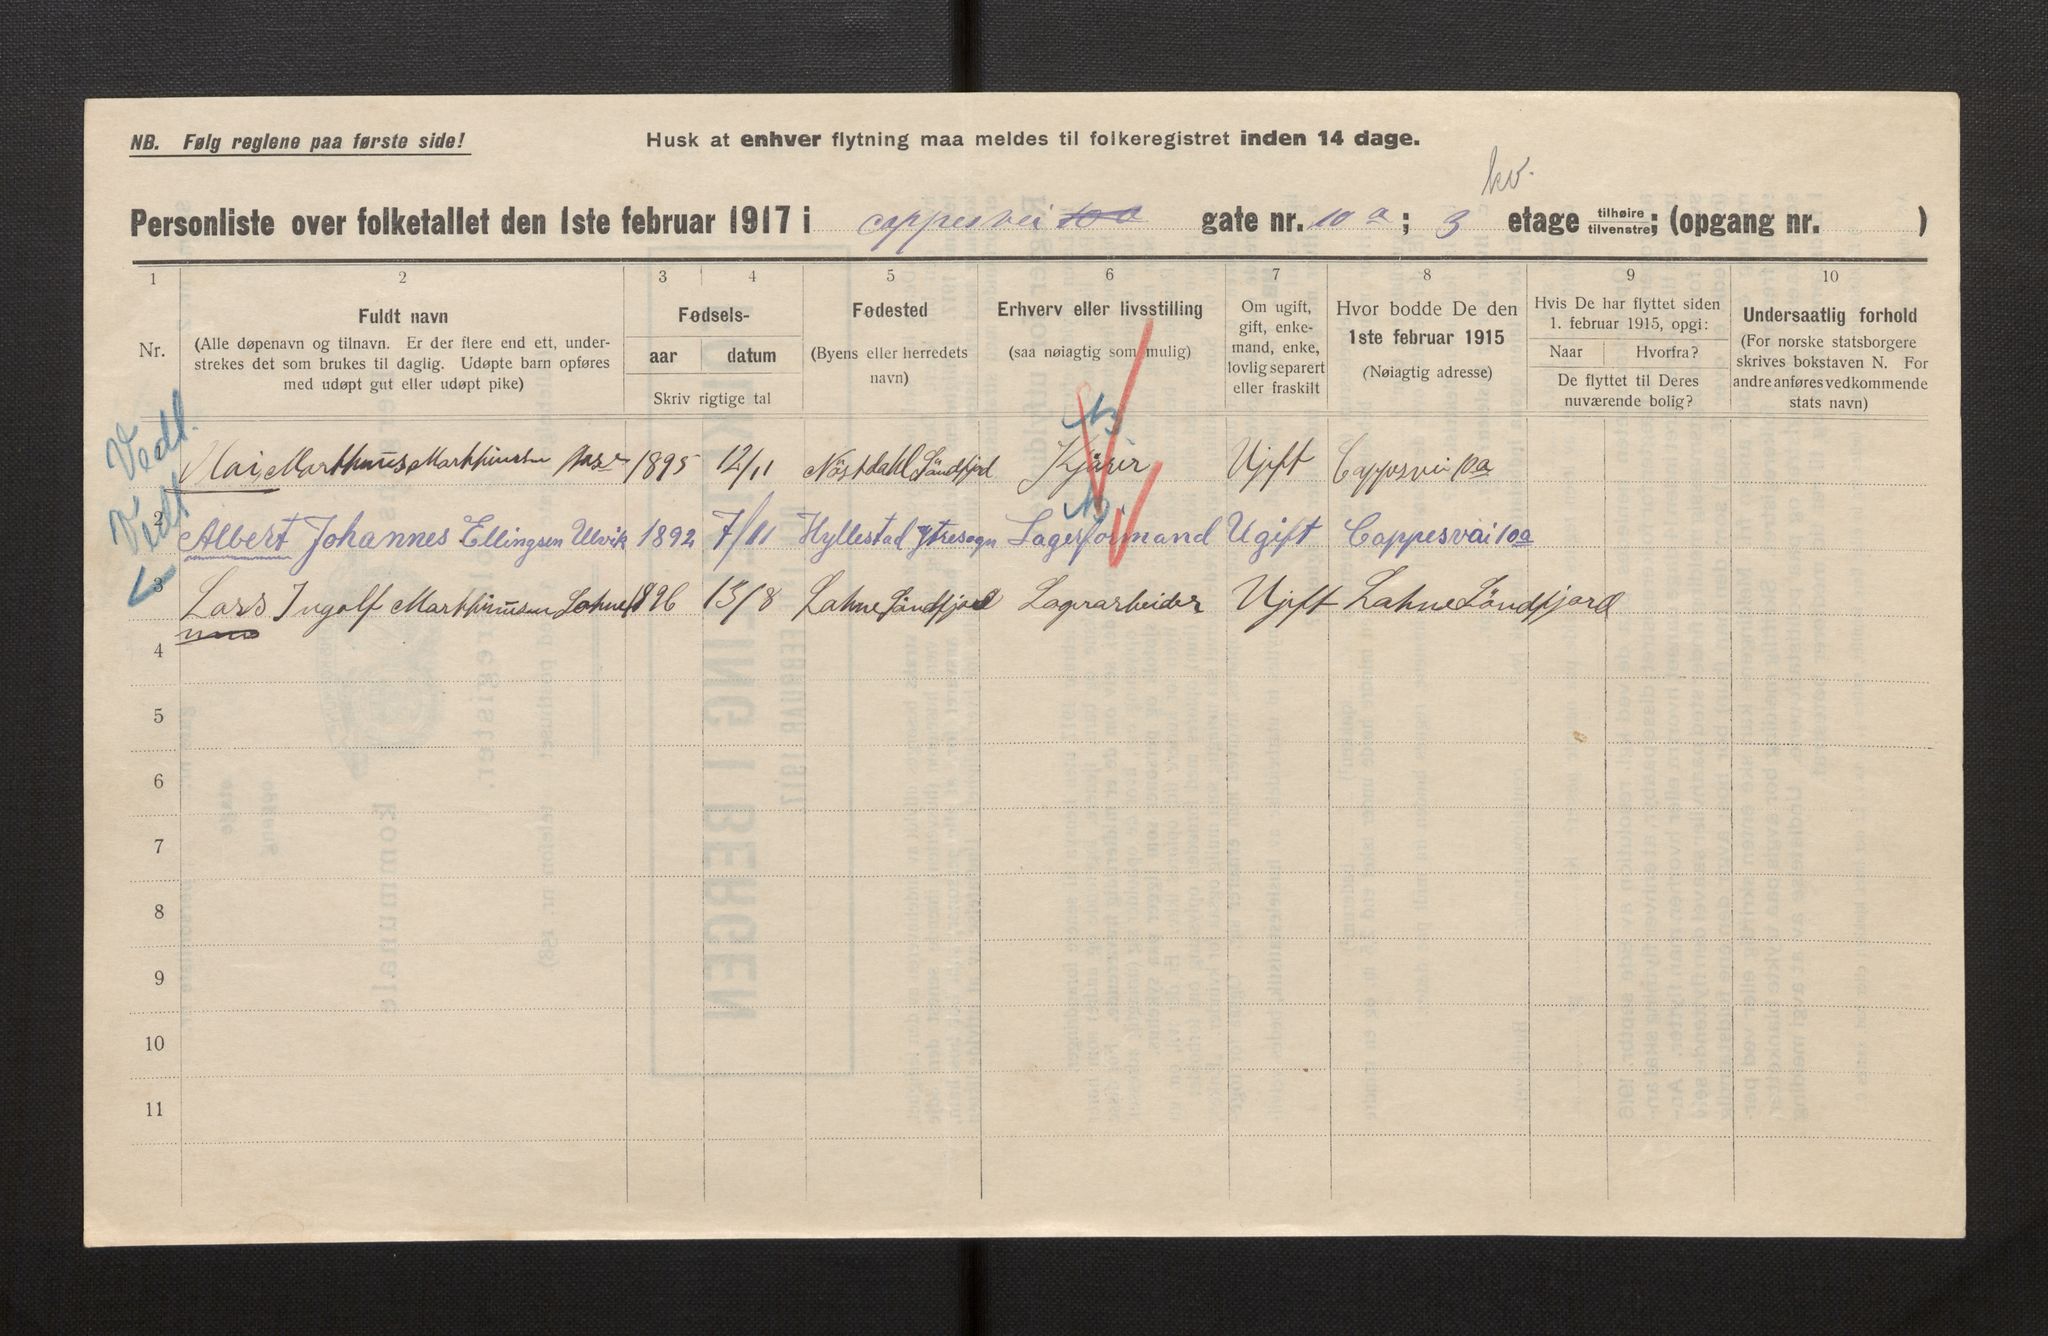 NB. Følg reglene paa første side!
Husk at enhver flytning maa meldes til folkeregistret inden 14 dage.
hv.
Personliste over folketallet den 1ste februar 1917 i cappesvei 10 a gate nr. 10 a; 3 etage tilhøire tilvenstre; (opgang nr. )
1 2 3 4 5 6 7 8 9 10
Nr.
Fuldt navn
(Alle døpenavn og tilnavn. Er der flere end ett, under-
strekes det som brukes til daglig. Udøpte barn opføres
med udøpt gut eller udøpt pike)
Fødsels-
aar datum
Skriv rigtige tal
Fødested
(Byens eller herredets
navn)
Erhverv eller livsstilling
(saa nøiagtig som mulig)
Om ugift,
gift, enke-
mand, enke,
lovlig separert
eller fraskilt
Hvor bodde De den
1ste februar 1915
(Nøiagtig adresse)
Hvis De har flyttet siden
1. februar 1915, opgi:
Naar Hvorfra?
De flyttet til Deres
nuværende bolig?
Undersaatlig forhold
(For norske statsborgere
skrives bokstaven N. For
andre anføres vedkommende
stats navn)
Vedl.
Marthinus Marthinsen 1895 12/11 Nöstdahl Söndfjord Kjörer Ugift Cappesvei 10a
Vedl
2 Albert Johannes Ellingsen Ulvik 1892 7/11 Hyllestad Ytresogn Lagerformand Ugift Cappesvai 10a
3 Lars Ingolf Marthinusen 1896 13/8 Lahne Söndfjord Lagerarbeider Ugift Lahne Söndfjord
4
5
6
7
8
9
10
11